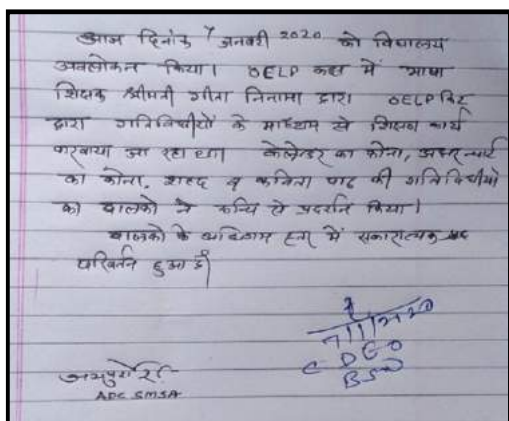 आज दिनांक 7 जनवरी 2020 को विद्यालय
अवलोकन किया। OELP कक्ष में भाषा
शिक्षक श्रीमती गीता निनामा द्वारा OELP किट
द्वारा गतिविधीयों के माध्यम से शिक्षण कार्य
करवाया जा रहा था। केलेन्डर का कोना, अक्षर चार्ट
का कोना, शब्द व कविता पाठ की गतिविधीयों
का बालकों ने रूचि से प्रदर्शन किया।
बालकों के अधिगम स्तर में सकारात्मक
परिवर्तन हुआ है।
CDEO
ADC SMSA